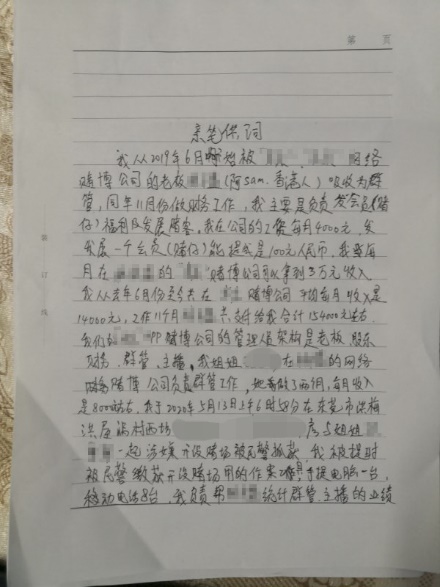 第 页
亲笔供词
我从2019年6月开始被 网络
赌博公司的老板 (阿sam.香港人)吸收为群
管,同年11月份做财务工作,我主要是负责发会员(赌
仔)福利及发展赌客,我在公司的工资每月4000元,发
展一个会员(赌仔)能提成是100元人民币,我每
月在 的 赌博公司可以拿到3万元收入
我从去年6月份至今共在 赌博公司平均每月收入是
14000元,工作11个月 共支付给我合计154000元左右.
我们 PP赌博公司的管理层架构是老板、股东
财务、群管、主播,我姐姐 在 的网络
赌博公司负责群管工作,她 做了两个月,每月收入
是8000左右,我于2020年5月13日上午6时50分在东莞市洪梅
洪屋涡村西坊 房与姐姐
一起涉嫌开设赌场被民警抓获,我被捉时
被民警缴获开设赌场用的作案工具手提电脑一台,
移动电话8台,我负责帮 统计群管、主播的业绩
装 订 线